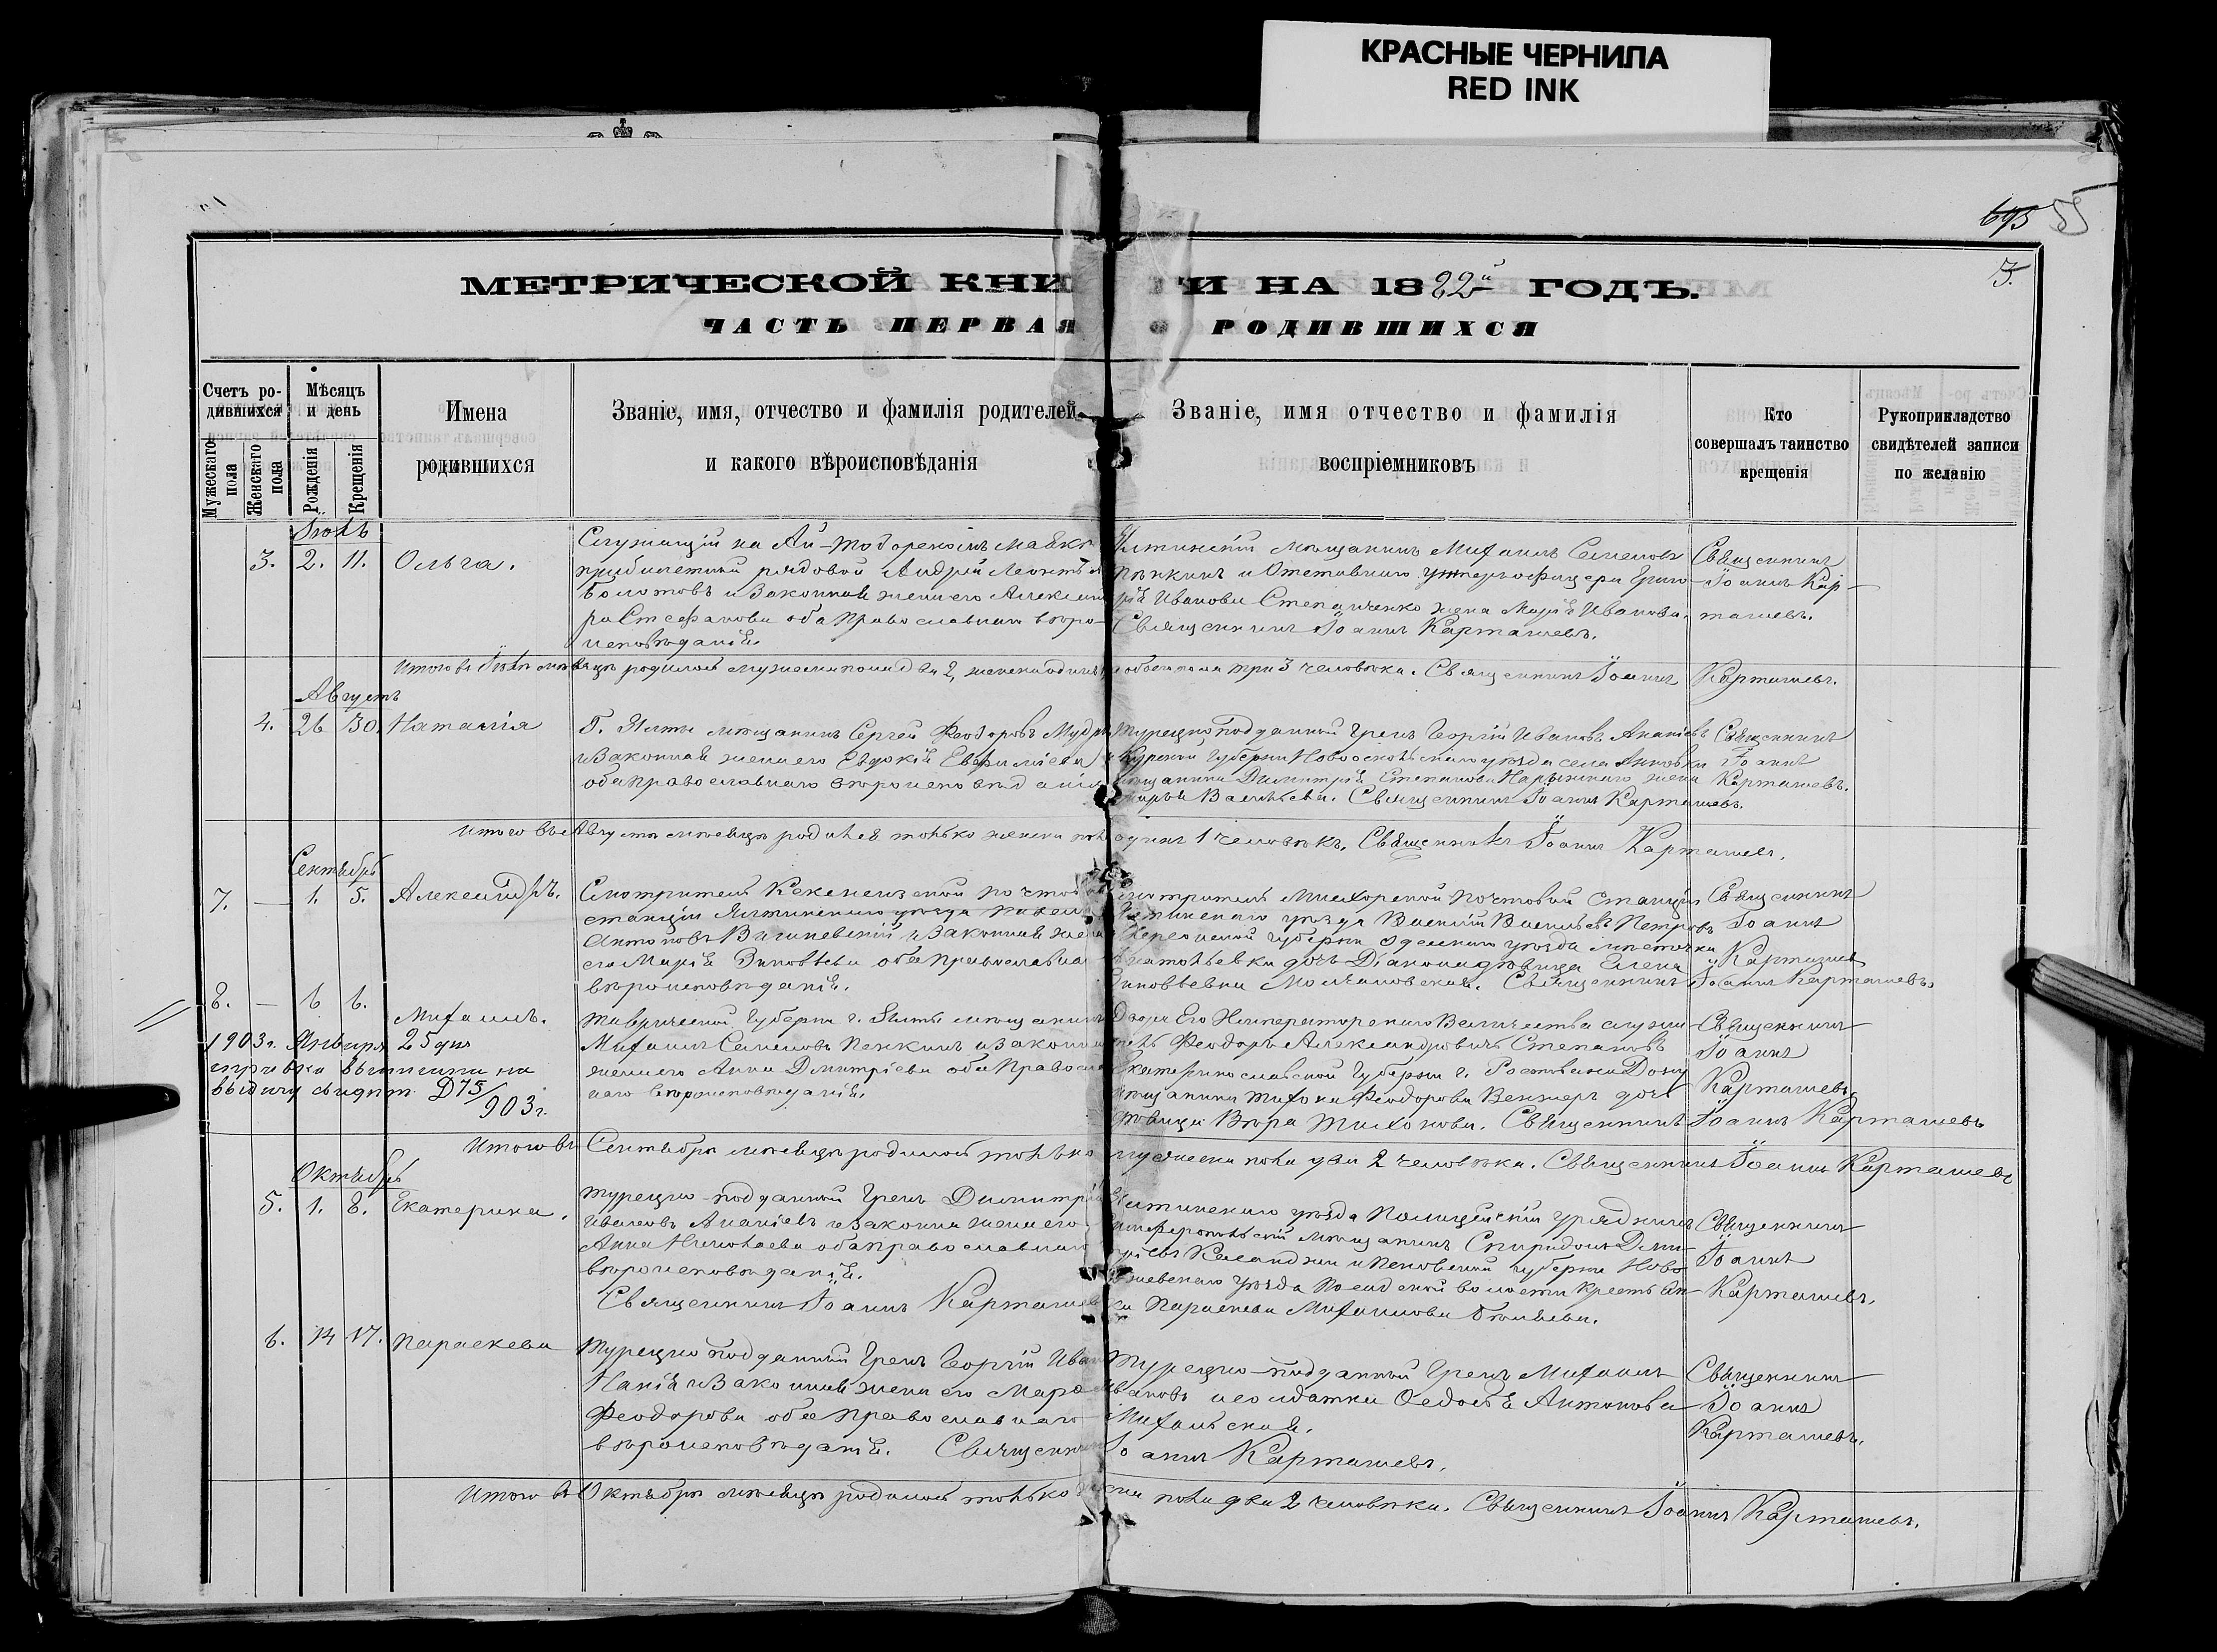 КРАСНЫЕ ЧЕРНИЛА
RED INK
695 55
МЕТРИЧЕСКОЙ КНИГИ НА 1882й ГОДЪ.
3.
ЧАСТЬ ПЕРВАЯ О РОДИВШИХСЯ
Счетъ родившихся
Мѣсяцъ и день
Имена родившихся
Званіе, имя, отчество и фамилія родителей
и какого вѣроисповѣданія
Званіе, имя отчество и фамилія
воспріемниковъ
Кто
совершалъ таинство
крещенія
Рукоприкладство
свидѣтелей записи
по желанію
Мужескаго пола
Женскаго пола
Рожденія
Крещенія
Іюль
3. 2. 11. Ольга.
Служащій на Ай-Тодорскомъ маякѣ
рядовой Андрей
Болотовъ и законная жена его Александ
ра Стефанова оба Православнаго вѣро-
исповѣданія.
Ялтинскій мѣщанинъ Михаилъ Семеновъ
Пѣнкинъ и Отставнаго унтеръ-офицера Григо-
рія Иванова Степанченко жена Марія Иванова.
Священникъ Іоаннъ Карташевъ.
Священникъ
Іоаннъ Кар-
ташевъ.
Итого въ Іюлѣ мѣсяцѣ родилось мужеска пола два 2, женска одинъ 1 обоего пола три 3 человѣка. Священникъ Іоаннъ Карташевъ.
Августъ
4. 26 30. Наталія
Г. Ялты мѣщанинъ Сергей Феодоровъ
и законная жена его Евдокія Евфиміева
оба православнаго вѣроисповѣданія
Турецко подданный Грекъ Георгій Ивановъ Ананіевъ
и Курской Губерніи Новооскольскаго уѣзда села
мѣщанина Димитрія Степанова жена
Марья Васильева. Священникъ Іоаннъ Карташевъ.
Священникъ
Іоаннъ
Карташевъ.
Итого въ Августѣ мѣсяцѣ родился только женска пола одинъ 1 человѣкъ. Священникъ Іоаннъ Карташевъ.
Сентябрь
7. — 1. 5. Александръ.
Смотритель Кекенеизской почтовой
станціи Ялтинскаго уѣзда
Антоновъ Вишневскій и законная жена
его Марія Зиновьева оба Православнаго
вѣроисповѣданія.
Смотритель Мисхорской Почтовой Станціи
Ялтинскаго уѣзда Василій Васильевъ Петровъ
Херсонской губерніи Одесскаго уѣзда мѣстечка
дочь Діакона дѣвица Елена
Зиновьевна Молчановская. Священникъ Іоаннъ Карташевъ.
Священникъ
Іоаннъ
Карташевъ
8. — 6 6. Михаилъ.
1903г. Января 25 дня
справка выписана на
выдачу свидѣт. Д75/903г.
Таврической Губерніи г. Ялты мѣщанинъ
Михаилъ Семеновъ Пенкинъ и законная
жена его Анна Дмитріева оба Православ
наго вѣроисповѣданія.
Двора Его Императорскаго Величества служи-
тель Феодоръ Александровичъ Степановъ
Екатеринославской Губерніи г. Ростова на Дону
мѣщанина Тихона Феодорова Венжеръ дочь
дѣвица Вѣра Тихонова. Священникъ Іоаннъ Карташевъ
Священникъ
Іоаннъ
Карташевъ
Итого въ Сентябрѣ мѣсяцѣ родилось только мужеска пола два 2 человѣка. Священникъ Іоаннъ Карташевъ
Октябрь
5. 1. 8. Екатерина.
Турецко-подданный Грекъ Димитрій
Ивановъ Ананіевъ и законная жена его
Анна Николаева оба православнаго
вѣроисповѣданія.
Священникъ Іоаннъ Карташевъ
Ялтинскаго уѣзда Полицейскій урядникъ
Симферопольскій мѣщанинъ Спиридонъ Дми-
тріевъ и Псковской губерніи Ново-
ржевскаго уѣзда волости крестьян-
ка Параскева Михаилова
Священникъ
Іоаннъ
Карташевъ.
6. 14 17. Параскева
Турецко подданный Грекъ Георгій Иван
и законная жена его
Феодорова оба Православнаго
вѣроисповѣданія. Священникъ Іоаннъ Карташевъ.
Турецко-подданный Грекъ Михаилъ
Ивановъ и солдатка Федосья Антонова
Священникъ
Іоаннъ
Карташевъ.
Итого въ Октябрѣ мѣсяцѣ родилось только женска пола два 2 человѣка. Священникъ Іоаннъ Карташевъ.